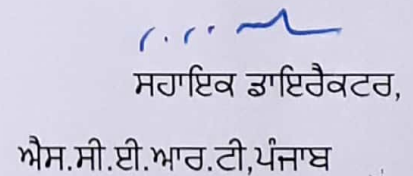 ਸਹਾਇਕ ਡਾਇਰੈਕਟਰ,
ਐਸ.ਸੀ.ਈ.ਆਰ.ਟੀ,ਪੰਜਾਬ